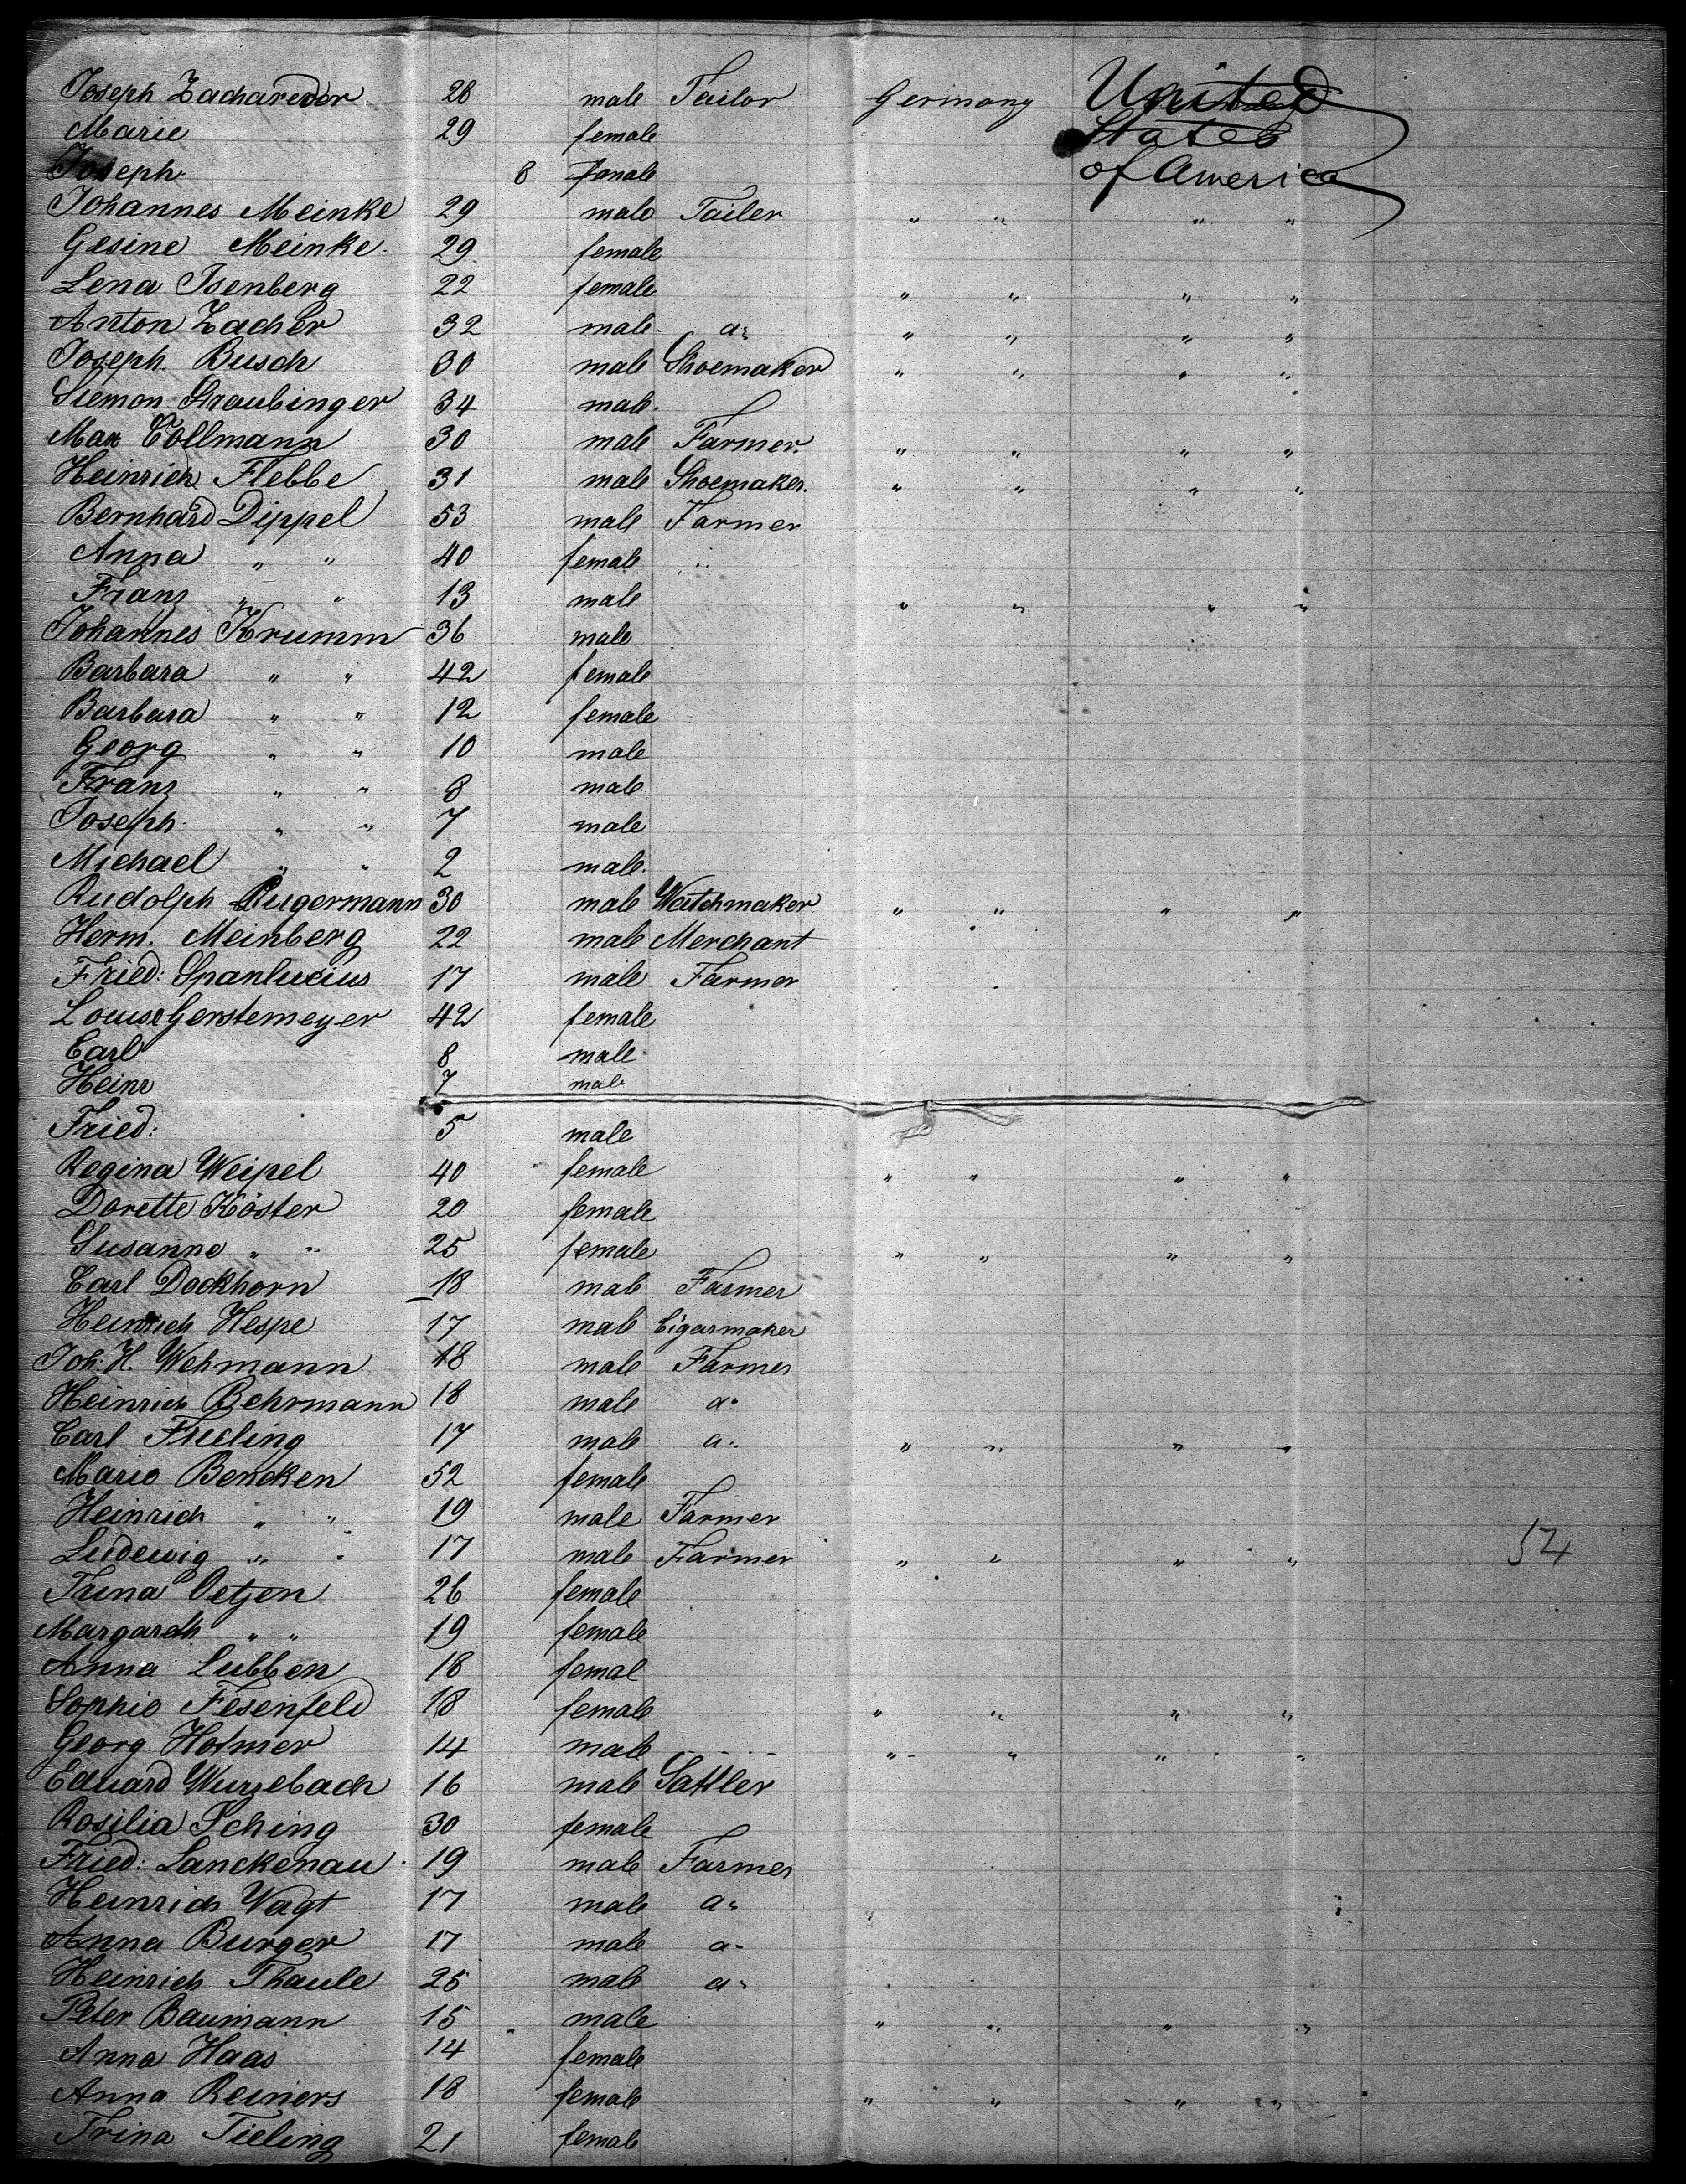 Joseph Zacharedor 28 male Tailor Germany United
Marie 29 female States
Joseph 8 female of America
Johannes Meinke 29 male Tailer " " " "
Gesine Meinke 29 female
Lena Isenberg 22 female " " " "
Anton Zacher 32 male do " " " "
Joseph Busch 30 male Shoemaker " " " "
Siemon Straubinger 34 male
Max Collmann 30 male Farmer " " " "
Heinrich Flebbe 31 male Shoemaker " " " "
Bernhard Dippel 53 male Farmer
Anna " " 40 female "
Franz " " 13 male " " " "
Johannes Krumm 36 male
Barbara " " 42 female
Barbara " " 12 female
Georg " " 10 male
Franz " " 8 male
Joseph " " 7 male
Michael " " 2 male
Rudolph 30 male Watchmaker " " " "
Herm. Meinberg 22 male Merchant
Fried: Spanlucius 17 male Farmer
Louise Gerstemeyer 42 female
Carl 8 male
Heinr 7 male
Fried: 5 male
Regina Weipel 40 female " " " "
Dorette Köster 20 female
Susanne " " 25 female " " " "
Carl Dockhorn 18 male Farmer
Heinrich Hespe 17 male Cigarmaker
Joh: H. Wehmann 18 male Farmer
Heinrich Behrmann 18 male do
Carl Frieling 17 male do " " " "
Marie Bencken 52 female
Heinrich " " 19 male Farmer
Ludewig " " 17 male Farmer " " " " 54
Trina Oetjen 26 female
Margareth " " 19 female
Anna Lubben 18 femal
Sophie Fesenfeld 18 female " " " "
Georg Hofmer 14 male " " " "
Eduard Wurzebach 16 male Sattler
Rosilia Sching 30 female
Fried: Lanckenau 19 male Farmer
Heinrich Vagt 17 male do
Anna Burger 17 male do
Heinrich Thaule 25 male do
Peter Baumann 15 male " " " "
Anna Haas 14 female
Anna Reiners 18 female " " " "
Trina Tieling 21 female